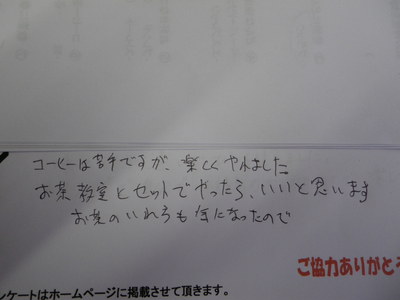 コーヒーは苦手ですが、楽しくやれました
お茶教室とセットでやったら、いいと思います
お茶のいれ方も気になったので
ご協力ありがとう
ンケートはホームページに掲載させて頂きます。